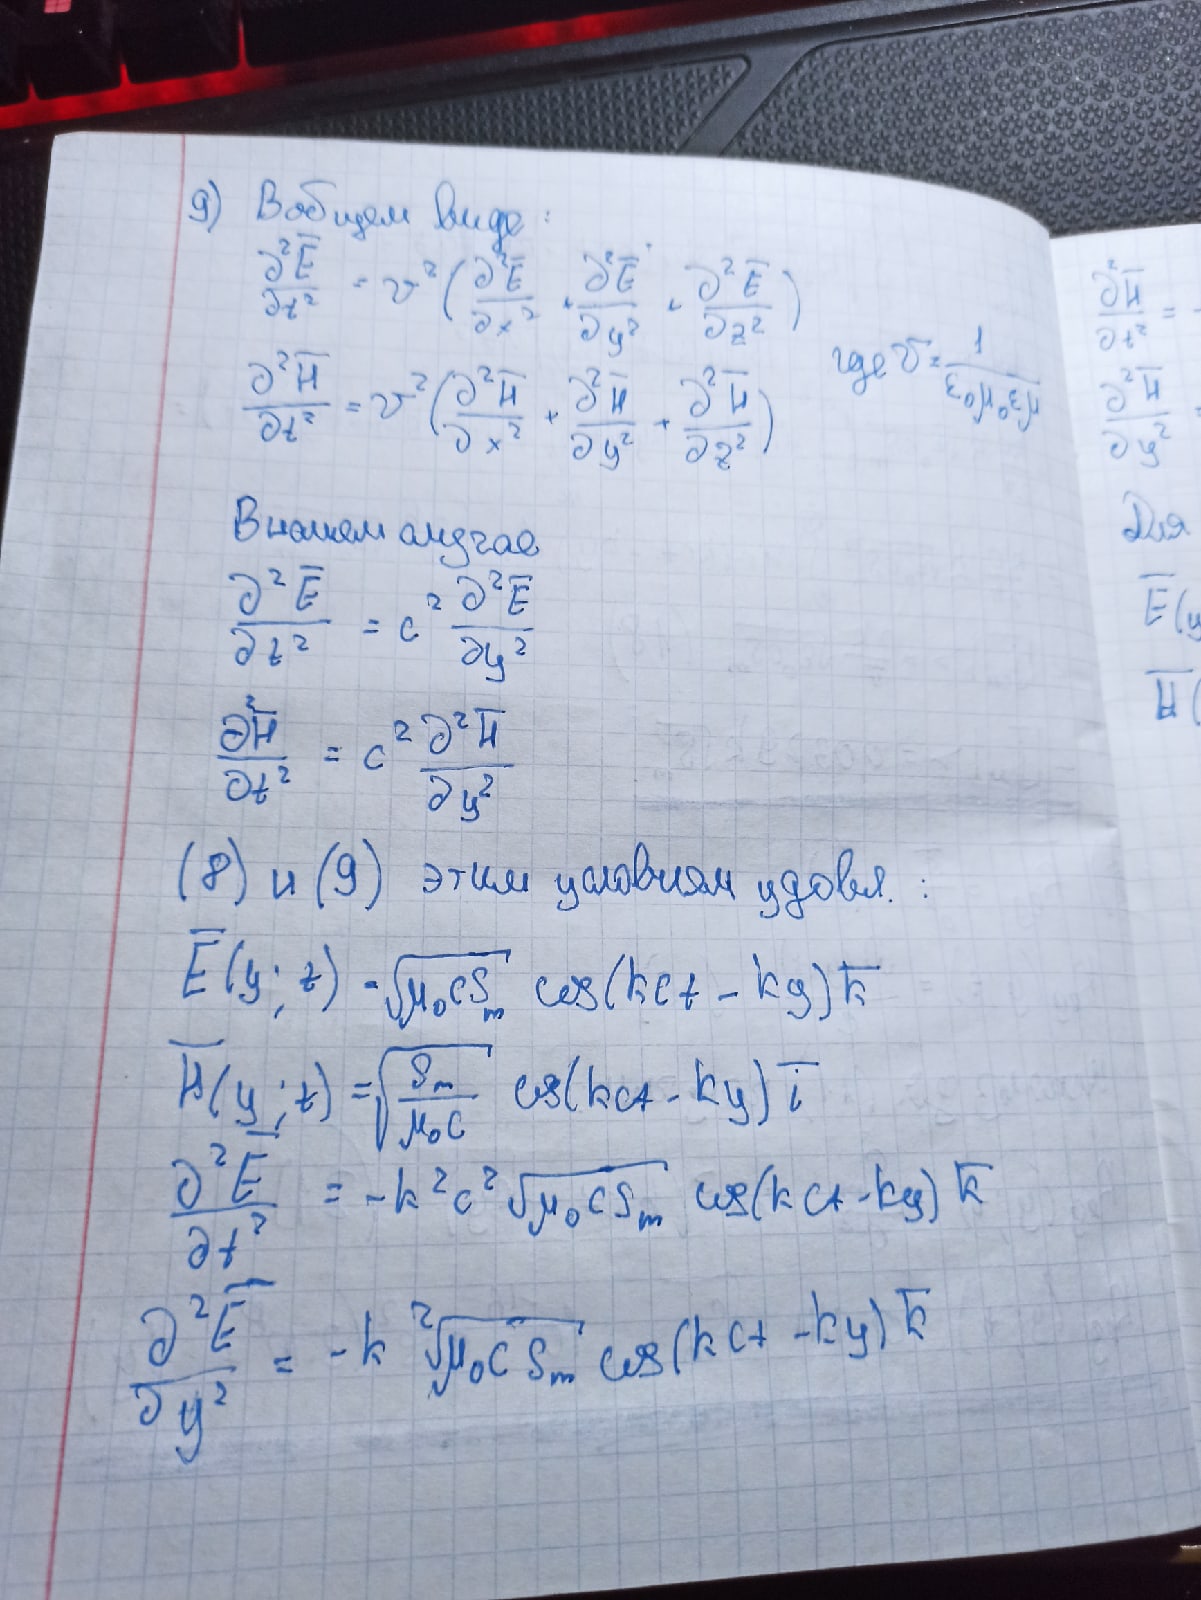 9) В общем виде:
∂²E̅/∂t² = v²(∂²E̅/∂x² + ∂²E̅/∂y² + ∂²E̅/∂z²)
∂²H̅/∂t² = v²(∂²H̅/∂x² + ∂²H̅/∂y² + ∂²H̅/∂z²)
где v =
В нашем случае
∂²E̅/∂t² = c² ∂²E̅/∂y²
∂²H̅/∂t² = c² ∂²H̅/∂y²
(8) и (9) этим условиям удовл. :
E̅(y; t) = √(μ₀CSₘ) cos(kct - ky) k̅
H̅(y; t) = √(Sₘ/μ₀C) cos(kct - ky) i̅
∂²E̅/∂t² = -k²c² √(μ₀CSₘ) cos(kct - ky) k̅
∂²E̅/∂y² = -k² √(μ₀CSₘ) cos(kct - ky) k̅
∂²H̅/∂t² =
∂²H̅/∂y²
Для
E̅(y
H̅(